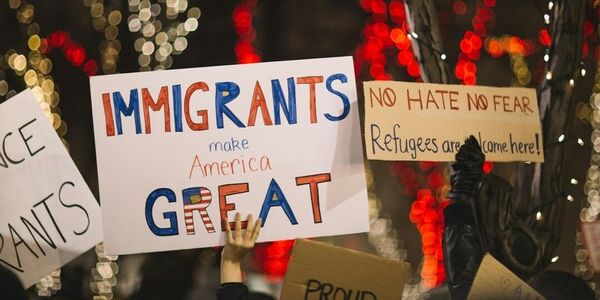 NCE
RANTS
IMMIGRANTS
make
America
GREAT
NO HATE NO FEAR
Refugees are welcome here!
PROUD